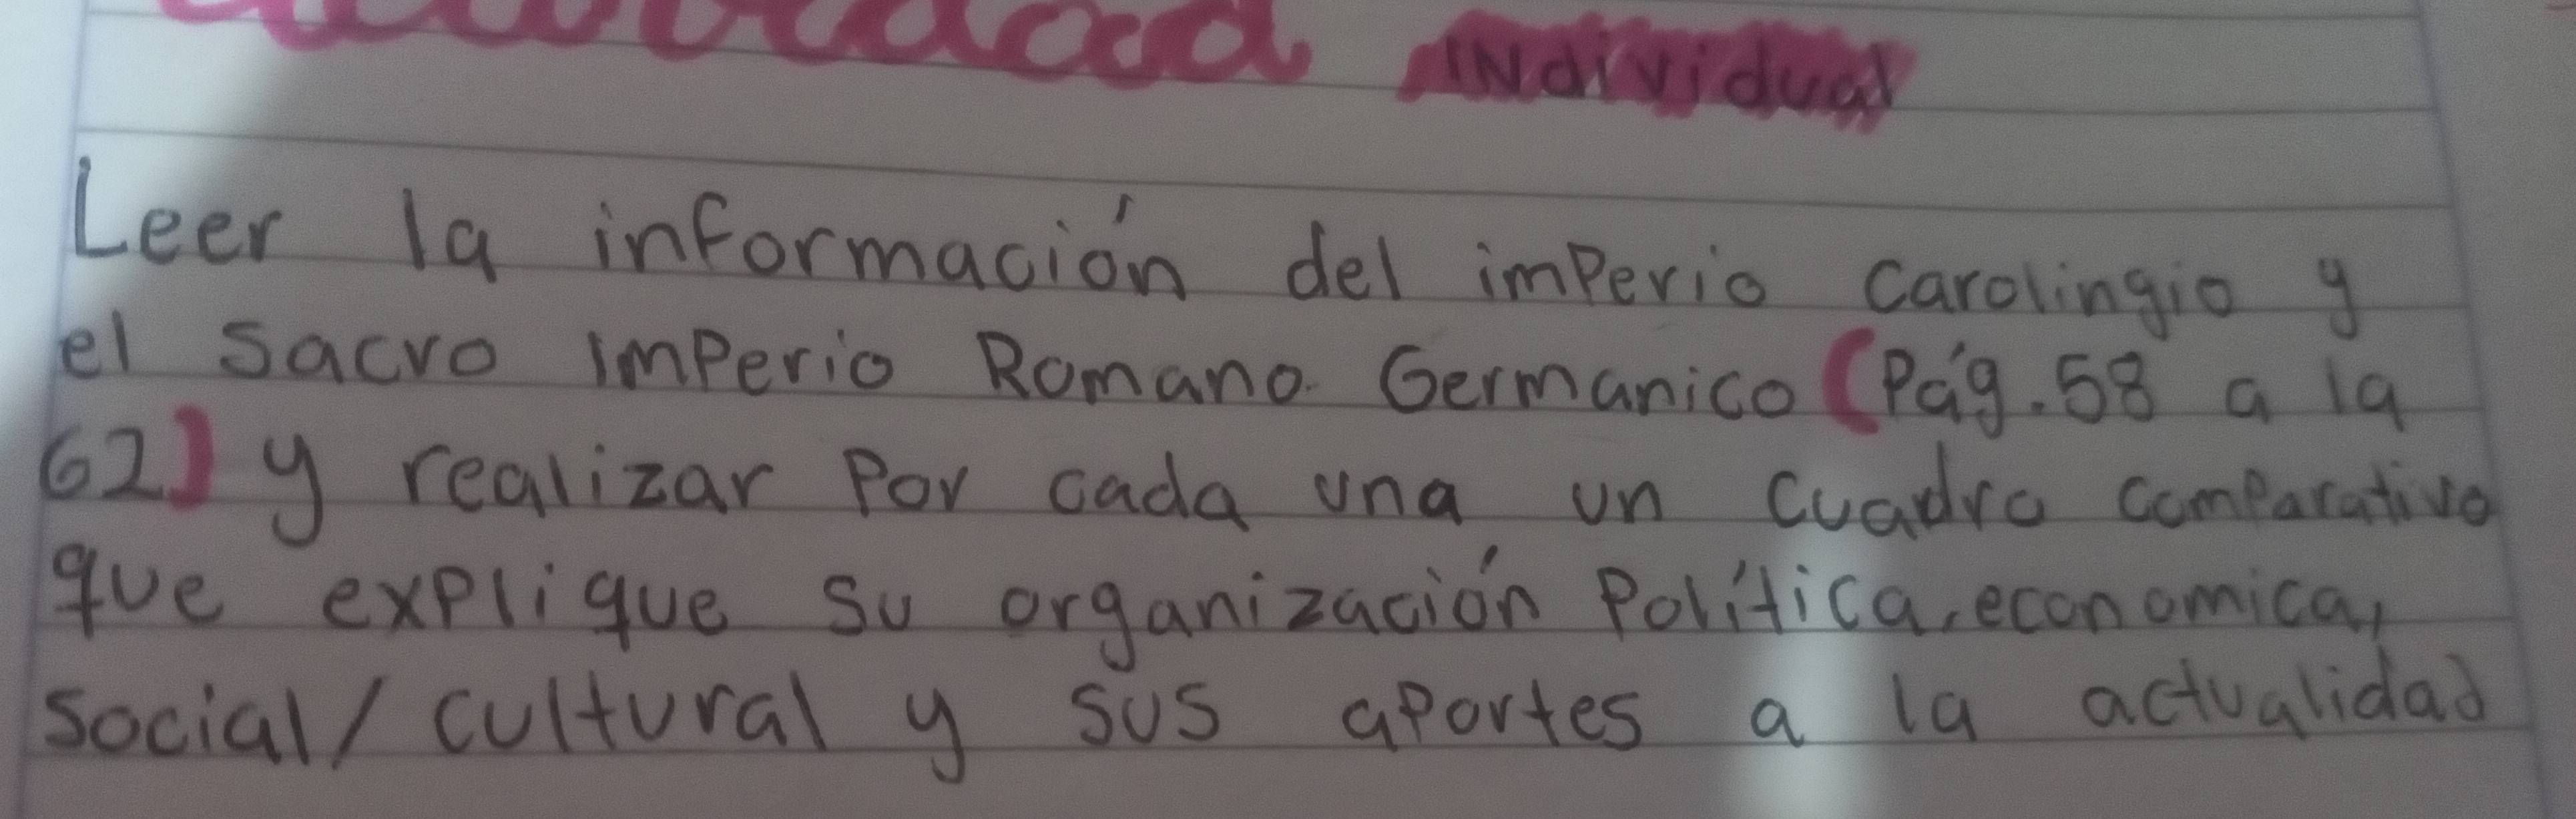 Individual
Leer la información del imperio carolingio y
el sacro imperio Romano Germanico (Pág. 58 a la
62) y realizar por cada una un cuadro comparativo
que explique su organización Política, economica,
social / cultural y sus aportes a la actualidad